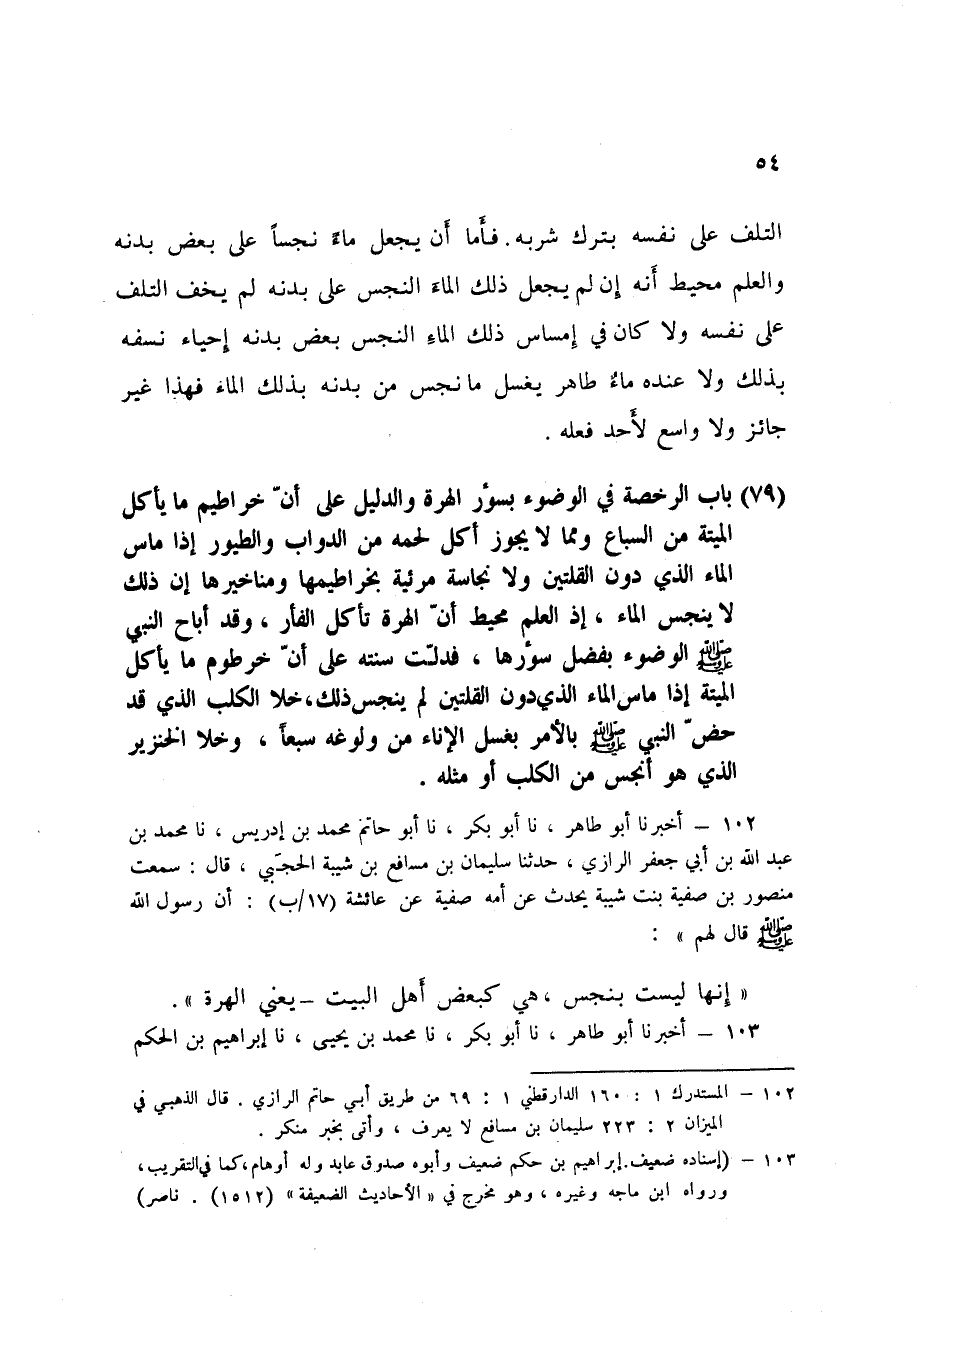 ٥٤
التلف على نفسه بترك شربه. فأَما أَن يجعل ماءً نجساً على بعض بدنه
والعلم محيط أَنه إِن لم يجعل ذلك الماءَ النجس على بدنه لم يخف التلف
على نفسه ولا كان في إِمساس ذلك الماءِ النجس بعض بدنه إِحياء نسفه
بذلك ولا عنده ماءٌ طاهر يغسل ما نجس من بدنه بذلك الماء فهذا غير
جائز ولا واسع لأَحد فعله .
(٧٩) باب الرخصة في الوضوء بسؤر الهرة والدليل على أنّ خراطيم ما يأكل
الميتة من السباع ومما لا يجوز أكل لحمه من الدواب والطيور إذا ماس
الماء الذي دون القلتين ولا نجاسة مرئية بخراطيمها ومناخيرها إن ذلك
لا ينجس الماء ، إذ العلم محيط أنّ الهرة تأكل الفأر ، وقد أباح النبي
ﷺ الوضوء بفضل سؤرها ، فدلّت سنته على أنّ خرطوم ما يأكل
الميتة إذا ماس الماء الذي دون القلتين لم ينجس ذلك، خلا الكلب الذي قد
حضّ النبي ﷺ بالأمر بغسل الإناء من ولوغه سبعاً ، وخلا الخنزير
الذي هو أنجس من الكلب أو مثله .
١٠٢ – أخبرنا أبو طاهر ، نا أبو بكر ، نا أبو حاتم محمد بن إدريس ، نا محمد بن
عبد الله بن أبي جعفر الرازي ، حدثنا سليمان بن مسافع بن شيبة الحجَبي ، قال : سمعت
منصور بن صفية بنت شيبة يحدث عن أمه صفية عن عائشة (١٧/ب) : أن رسول الله
ﷺ قال لهم » :
« إِنها ليست بنجس ، هي كبعض أَهل البيت – يعني الهرة ».
١٠٣ – أخبرنا أبو طاهر ، نا أبو بكر ، نا محمد بن يحيى ، نا إبراهيم بن الحكم
١٠٢ – المستدرك ١ : ١٦٠ الدارقطني ١ : ٦٩ من طريق أبي حاتم الرازي . قال الذهبي في
الميزان ٢ : ٢٢٣ سليمان بن مسافع لا يعرف ، وأتى بخبر منكر .
١٠٣ – (إسناده ضعيف. إبراهيم بن حكم ضعيف وأبوه صدوق عابد وله أوهام، كما في التقريب،
ورواه ابن ماجه وغيره ، وهو مخرج في « الأحاديث الضعيفة » (١٥١٢) . ناصر)